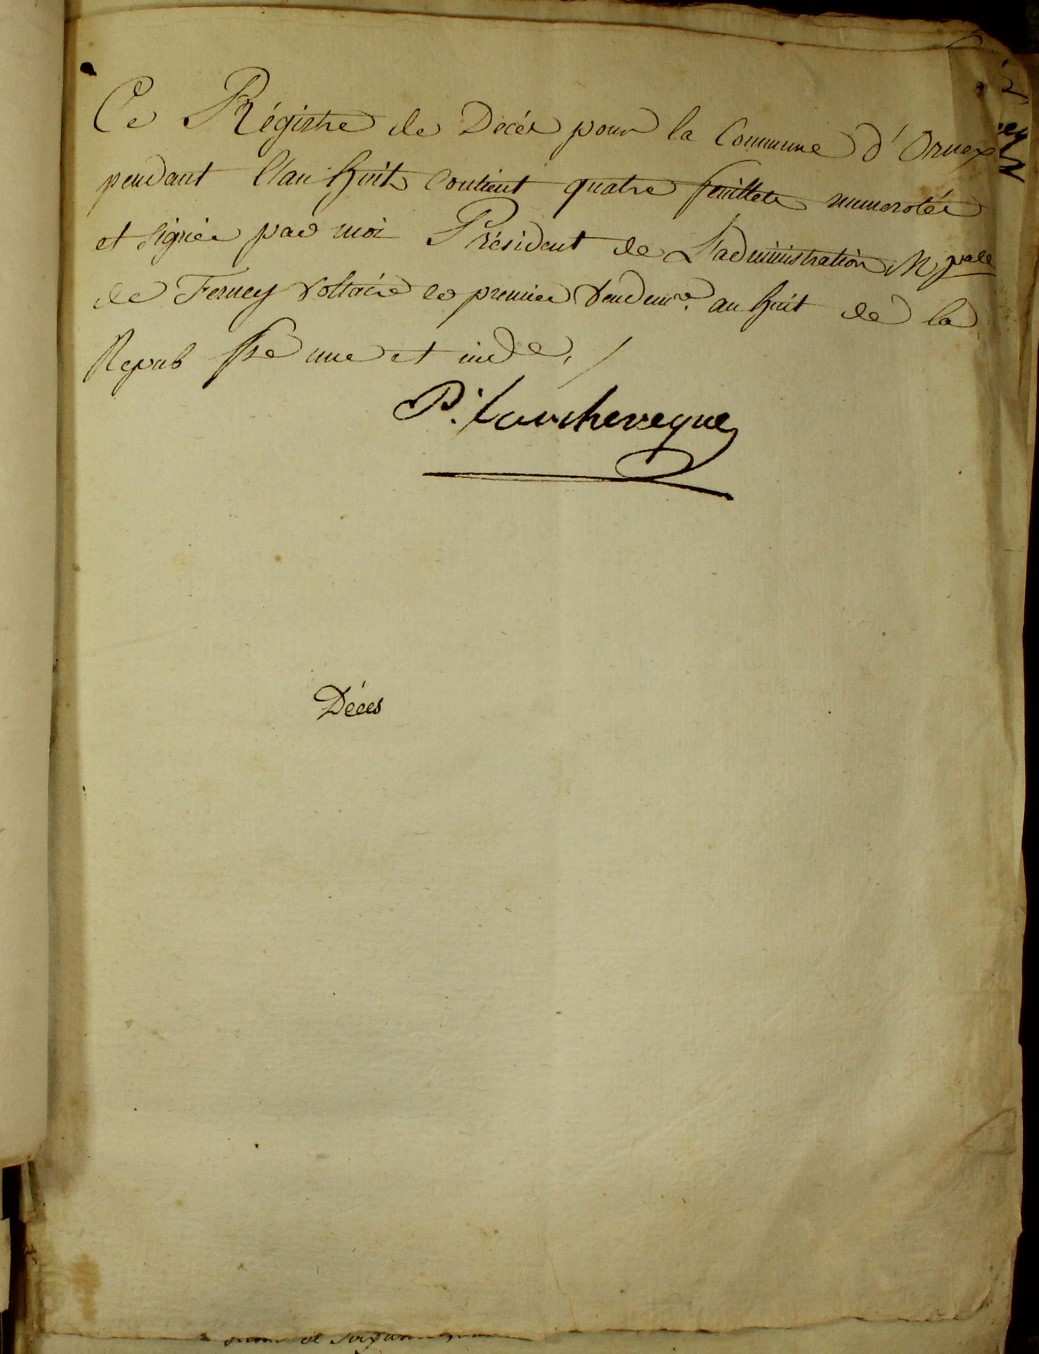 Ce Régistre de Décés pour la Commune d'Ornex
pendant l'an huit contient quatre feuillets numerotés
et signés par moi Président de L'administration Mpale
de Ferney Voltaire le premier Vendemre. an huit de la
Repub fse une et inde.
P.
Décès